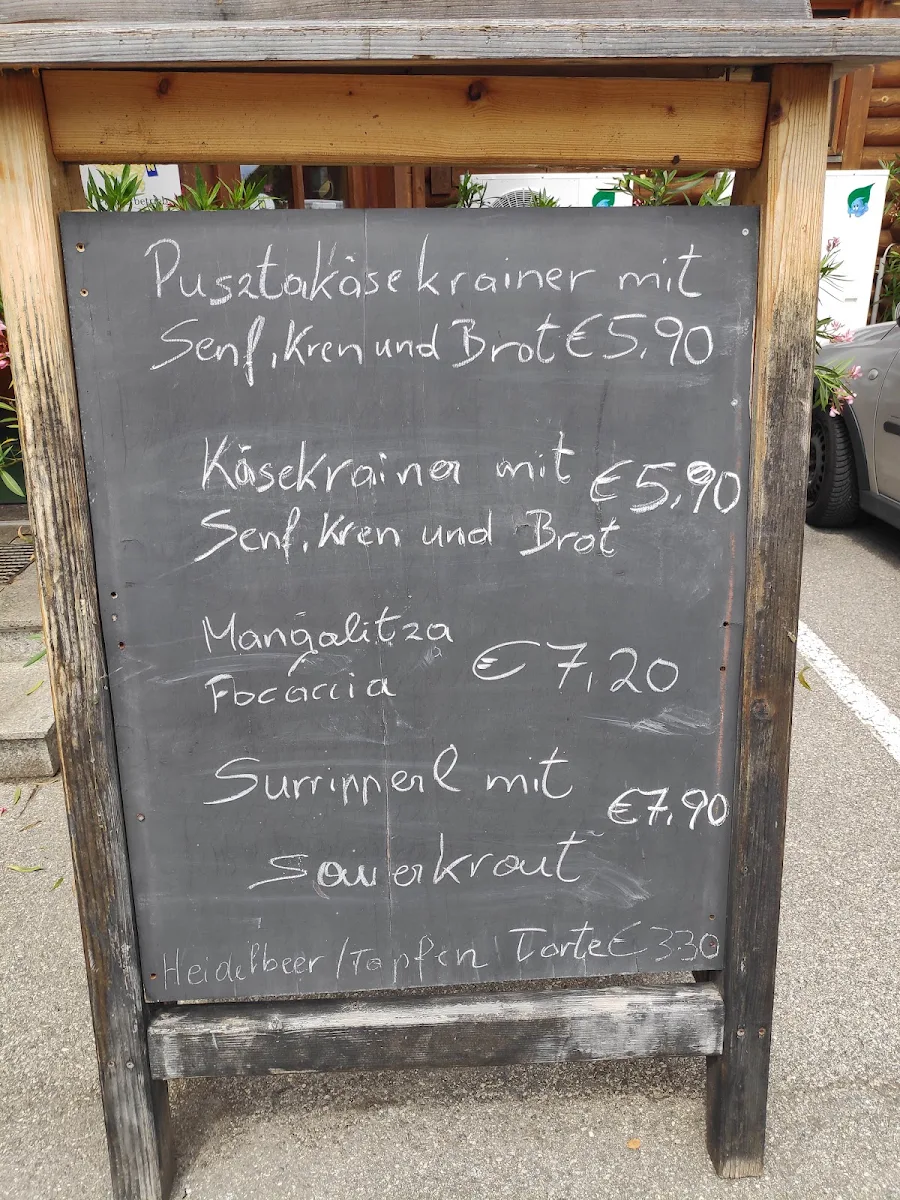 Pusztakäsekrainer mit
Senf, Kren und Brot €5,90
Käsekrainer mit €5,90
Senf, Kren und Brot
Mangalitza
Focaccia €7,20
Surripperl mit
€7,90
Sauerkraut
Heidelbeer/Topfen Torte € 330